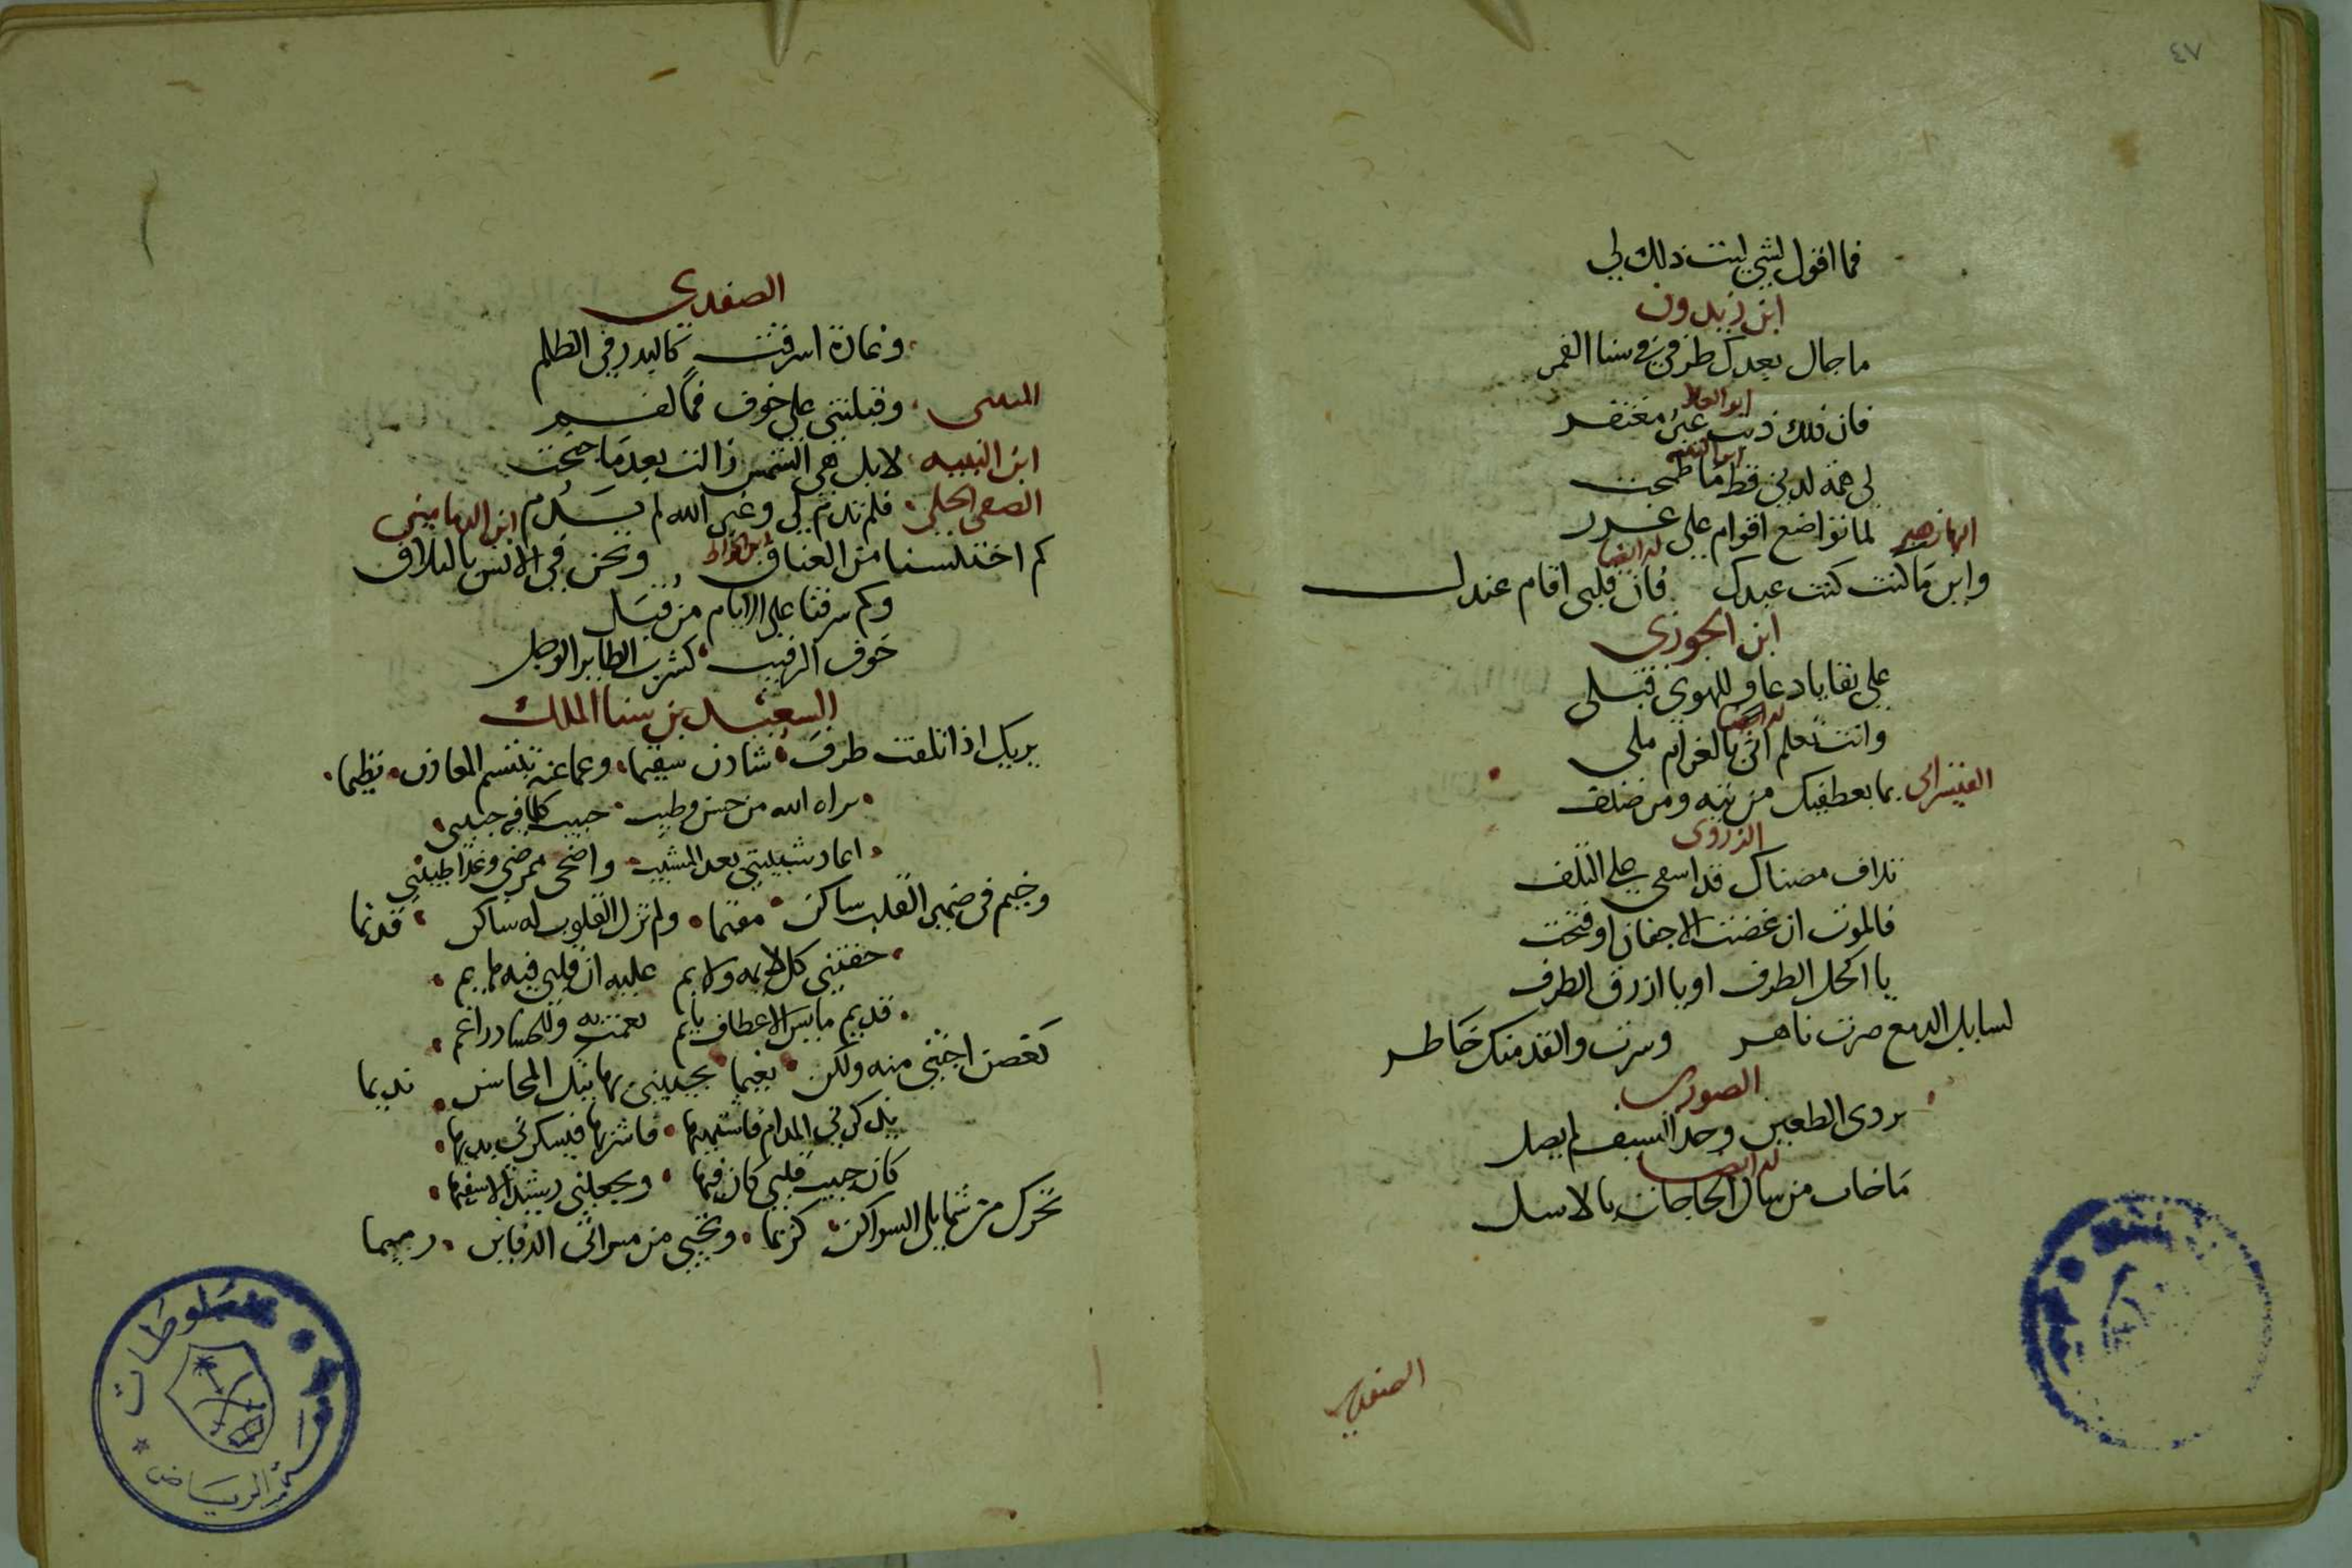 ٤٧
فما اقول لشي ليت ذلك لي
ابن زيدون
ما جال بعدك طرفي في سنا القمر
ابو العلا
فان ذلك ذنب غير مغتفر
لي همة لدني قط ما طمحت
البها زهير لما تواضع اقوام على غرر
له ايضا
واين ما كنت كنت عبدك فان قلبي اقام عندك
ابن الجوزي
على بقايا دعاو للهوى قبلي
له ايضا
وانت تعلم اني بالغرام ملي
القيسراني بما بعطفيك من تيه ومن صلف
الذروي
تلاف مضناك قد اشفى على التلف
فالموت ان غضت الاجفان او فتحت
يا اكحل الطرف او يا ازرق الطرف
لسايل الدمع صرت ناهر وسرت والقد منك خاطر
الصوري
يردي الطعين وحد السيف لم يصل
له ايضا
ما خاب من سال الحاجات بالاسل
الصفدي
الصفدي
وغادة اشرقت كالبدر في الظلم
المتنبي وقبلتني على خوف فما لفم
ابن النبيه لا بل هي الشمس زالت بعد ما جنحت
الصفي الحلي فلم تدم لي وغير الله لم يدم ابن الدماميني
كم اختلسنا من العناق ونحن في الانس بالتلاق
وكم سرقنا على الايام من قبل
خوف الرقيب كشرب الطاير الوجل
السعيد بن سنا الملك
يريك اذا تلفت طرف شادن سقيما وعما عنه تبتسم المعادن نظيما
براه الله من حسن وطيب حبيب كلما فيه حبيبي
اعاد شبيبتي بعد المشيب واضحى ممرضي وغدا طبيبي
وخيم في ضمير القلب ساكن مقيما ولم تزل القلوب له مساكن قديما
خفتني كل لايمة ولايم عليه ان قلبي فيه هايم
قديم مايس الاعطاف نايم نعمت به وللحساد راغم
كغصن اجتني منه ولكن نعيما يحييني بهاتيك المحاسن نديما
يذكرني المدام فاشتهيها فاشربها فيسكرني بديها
كان حبيب قلبي كان فيها ويجعلني رشيدا لا سفيها
تحرك من شمايلي السواكن كريما وتحيي من مسراتي الدفاين رميما
مخطوطات
الرياض